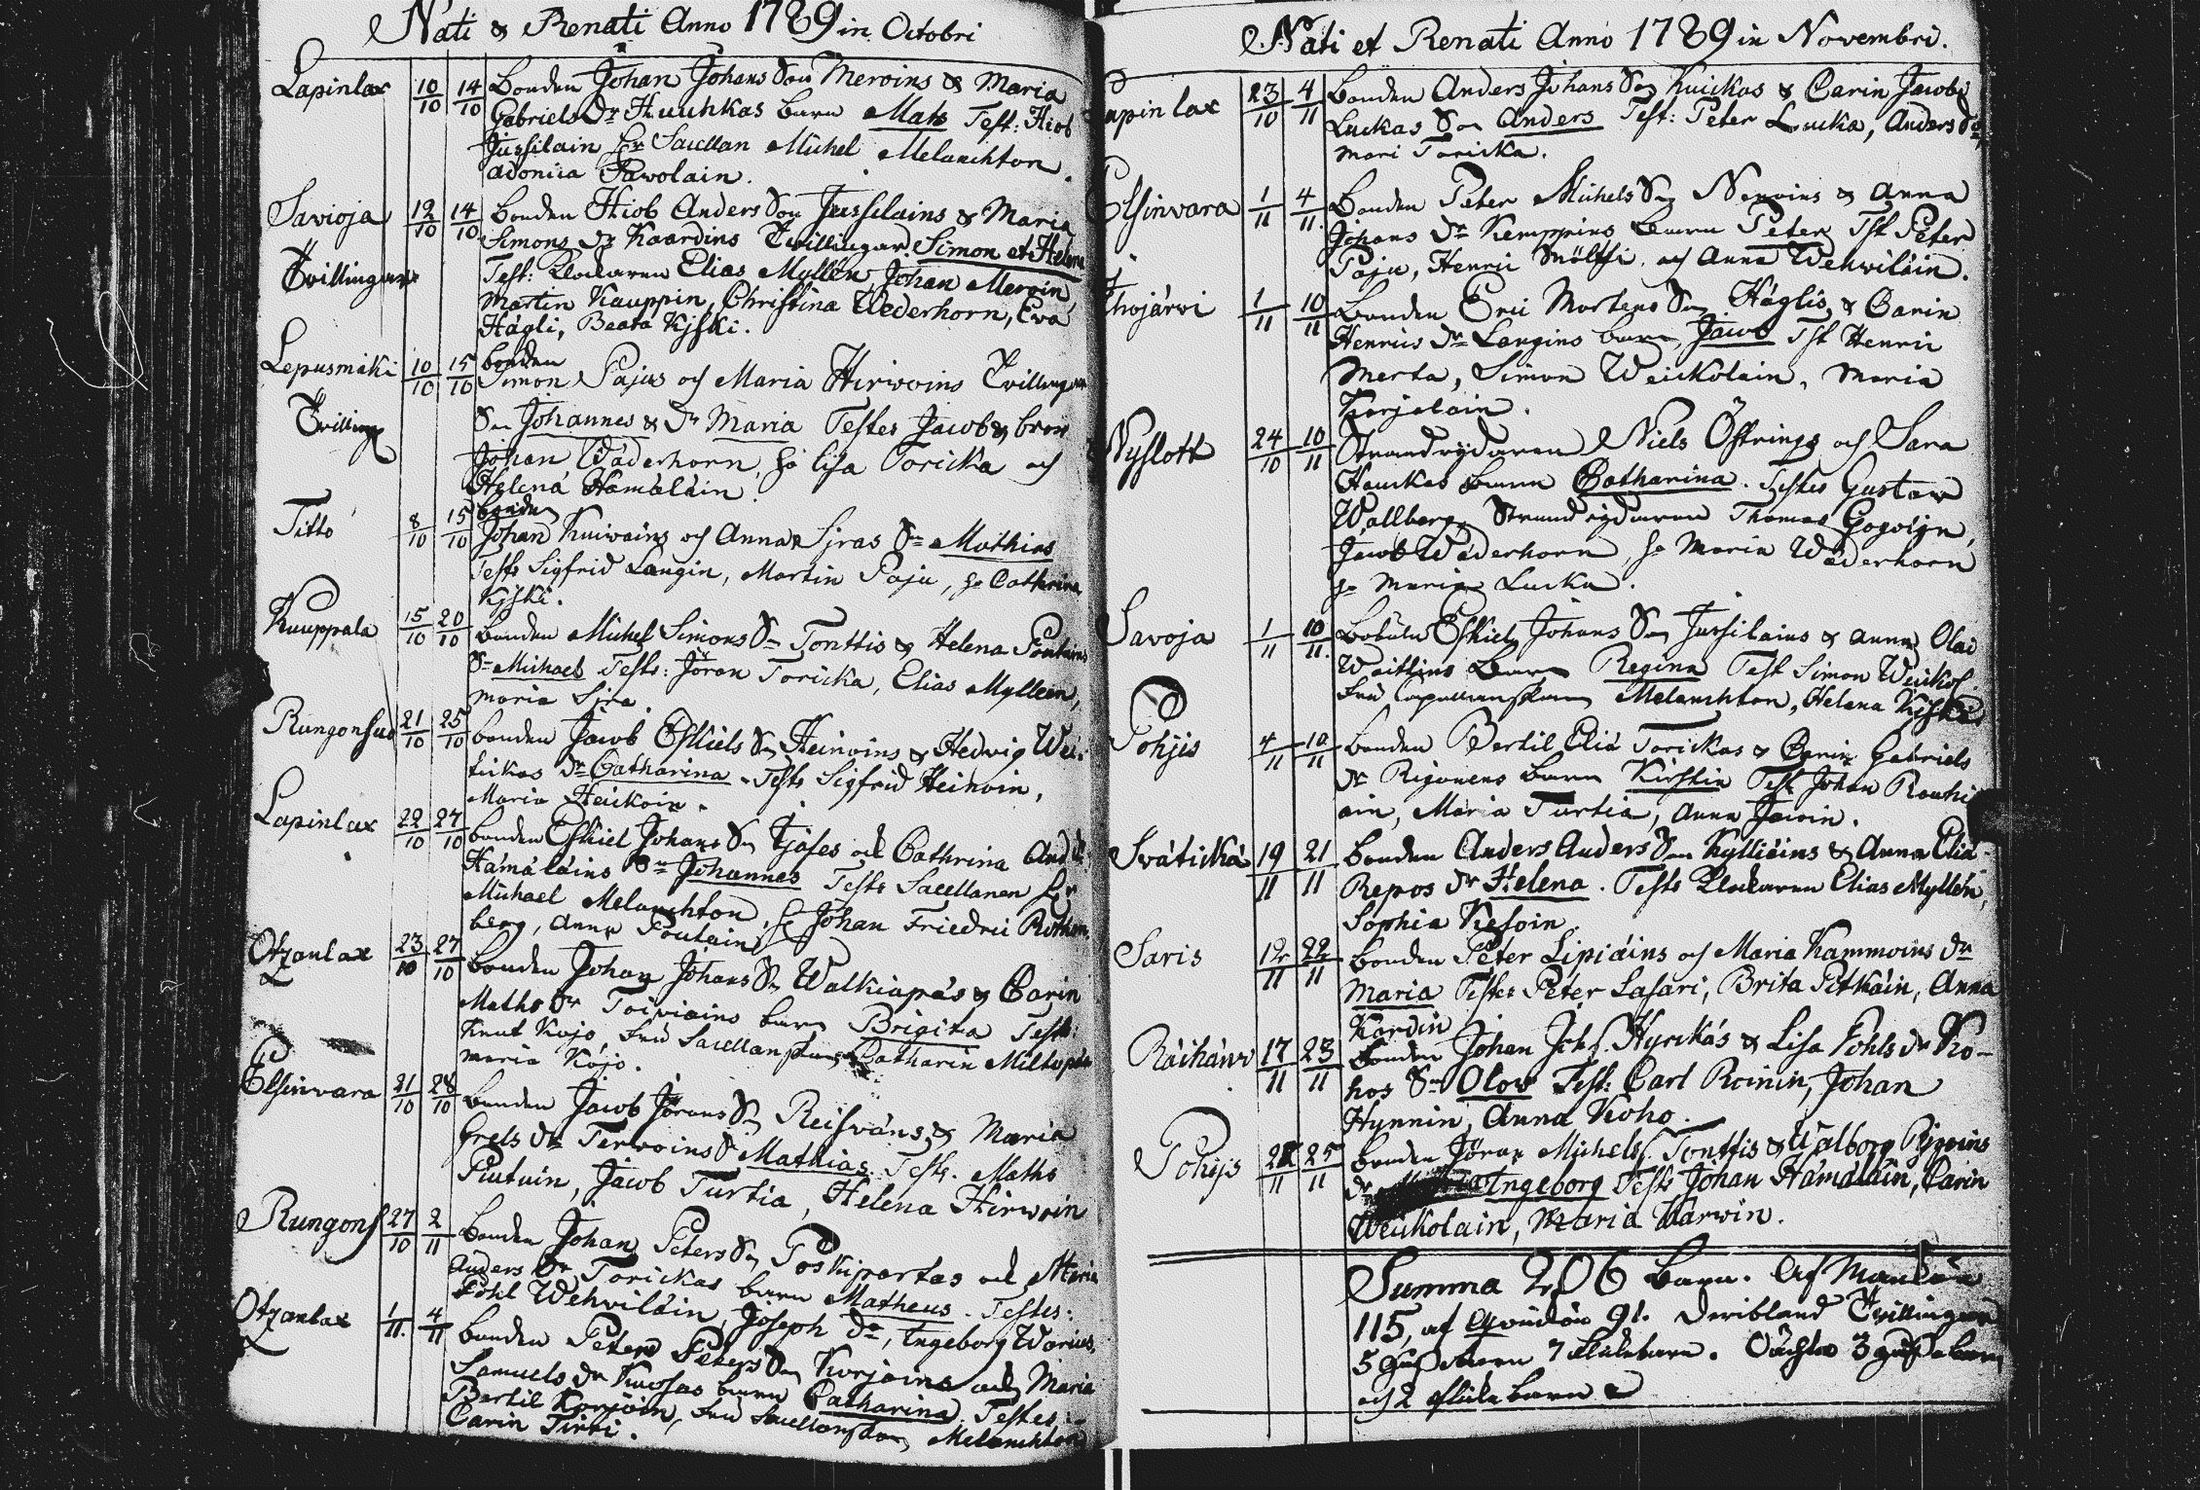 Nati & Renati Anno 1789 in Octobri
Lapinlax 10/10 14/10 Bonden Johan Johans Son Mervins & Maria
Gabriels Dr Huuhkas barn Mats Test: Hiob
Jussilain Hr Sacellan Michel Melanchton
Adonica Pawolain.
Savioja 12/10 14/10 bonden Hiob Anders Son Jussilains & Maria
Tvillingar Simons dr Kaardins Tvillingar Simon et Helena
Test: Klockaren Elias Myllén, Johan Mervin,
Martin Kauppin, Christina Wederhorn, Eva
Hägli, Beata Kijski.
Lepusmäki 10/10 15/10 bonden
Simon Pajus och Maria Hirwoins Tvillingar
Tvilling Son Johannes & Dr Maria Testes Jacob &
Johan Wäderhorn, Lisa Toricka och
Helena Hämäläin.
Titto 8/10 15/10 bonden
Johan Kuiwains och Anna Sjras Sn Mathias
Tests Sigfrid Langin, Martin Paju, Cathrina
Kijski.
Kauppala 15/10 20/10 bonden Michel Simons Sn Tonttis & Helena Poutains
Sn Michael Tests: Jöran Toricka, Elias Myllein,
Maria Sjra.
Rungonsuo 21/10 25/10 bonden Jacob Eskiels Sn Heinoins & Hedwig Wei-
Dr Catharina. Tests Sigfrid Heinoin,
Maria Heickoin.
Lapinlax 22/10 27/10 bonden Eskiel Johans Sn Tjäses och Cathrina And
Hämäläins Sn Johannes Tests Sacellanen Hr
Michael Melanchton, Johan Friedric Rothen-
berg, Anna Poutain
Otzanlax 23/10 27/10 bonden Johan Johans Sn Walkiapäs & Carin
Maths Dr Toiviains barn Brigita Tests:
Knut Kojo, Catharin
Maria Kojo.
Elsinvara 21/10 28/10 bonden Jacob Jörans Sn Reisväns & Maria
Grels dr Terwoins Sn Mathias. Tests. Maths
Putuin, Jacob Turtia, Helena Hirwoin
Rungons 27/10 2/11 bonden Johan Peters Sn Poskipartas och Maria
Anders Dr Torickas barn Matheus. Testes:
Pohl Wehviläin, Joseph dr, Ingeborg
Otzanlax 1/11 4/11 bonden Peter Peters Son Korjoins och Maria
Samuels dr barn Catharina. Testes:
Bertil Korjoin, Melanchton
Carin Tirri.
Nati et Renati Anno 1789 in Novembri.
Lapinlax 23/10 4/11 bonden Anders Johans Son Kuickas & Carin Jacobs
Luckas Son Anders Test: Peter Lucka, Anders
Mari Toricka.
Elsinvara 1/11 4/11 bonden Peter Michels Son Nenoins & Anna
Johans dr Kemppins barn Peter Tst Peter
Paju, Henric Möltsi och Anna Wehviläin.
1/11 10/11 bonden Eric Mortens Son Häglis & Carin
Henrics dr Langins barn Jacob Tst Henric
Merta, Simon Weickolain, Maria
Korjalain.
Nyslott 24/10 10/11 Strandrydaren Niels Östrings och Sara
Hauckas barn Catharina. Testes Gustav
Wallberg, Strandrydaren Thomas Gogolijn,
Jacob Wäderhorn, Maria Wäderhorn
Maria Lucka.
Savoja 1/11 10/11 Eskiel Johans Son Jussilains & Anna Olai
Waittins Barn Regina Test Simon Weickol.
Melanchton, Helena Kijski
Pohjis 4/11 10/11 bonden Bertil Elia Torickas & Carin Gabriels
dr Rigonens barn Kirstin Test Johan Rauhi-
ain, Maria Turtia, Anna Jäwin.
Svätickä 19/11 21/11 bonden Anders Anders Son Kylliäins & Anna Elia
Repos dr Helena. Tests Klockaren Elias Myllén,
Sophia Kesoin
Saris 12/11 22/11 bonden Peter Lipiäins och Maria Kammoins dr
Maria Testes Peter Lasari, Brita Pitkäin, Anna
Kardin
Räihänr 17/11 23/11 bonden Johan Johs. Hyrckäs & Lisa Pohls dr Ko-
hos Sn Olov Test: Carl Roinin, Johan
Hynnin, Anna Koho.
Pohjis 25/11 bonden Jöran Michels Tonttis & Walborg Rigoins
dr Ingeborg Tests Johan Hämäläin, Carin
Weickolain, Maria Warwin.
Summa 206 barn. Af Mankön
115, af Qvinkön 91. Deribland Tvillingar
5 7 Oächta 3
och 2 barn